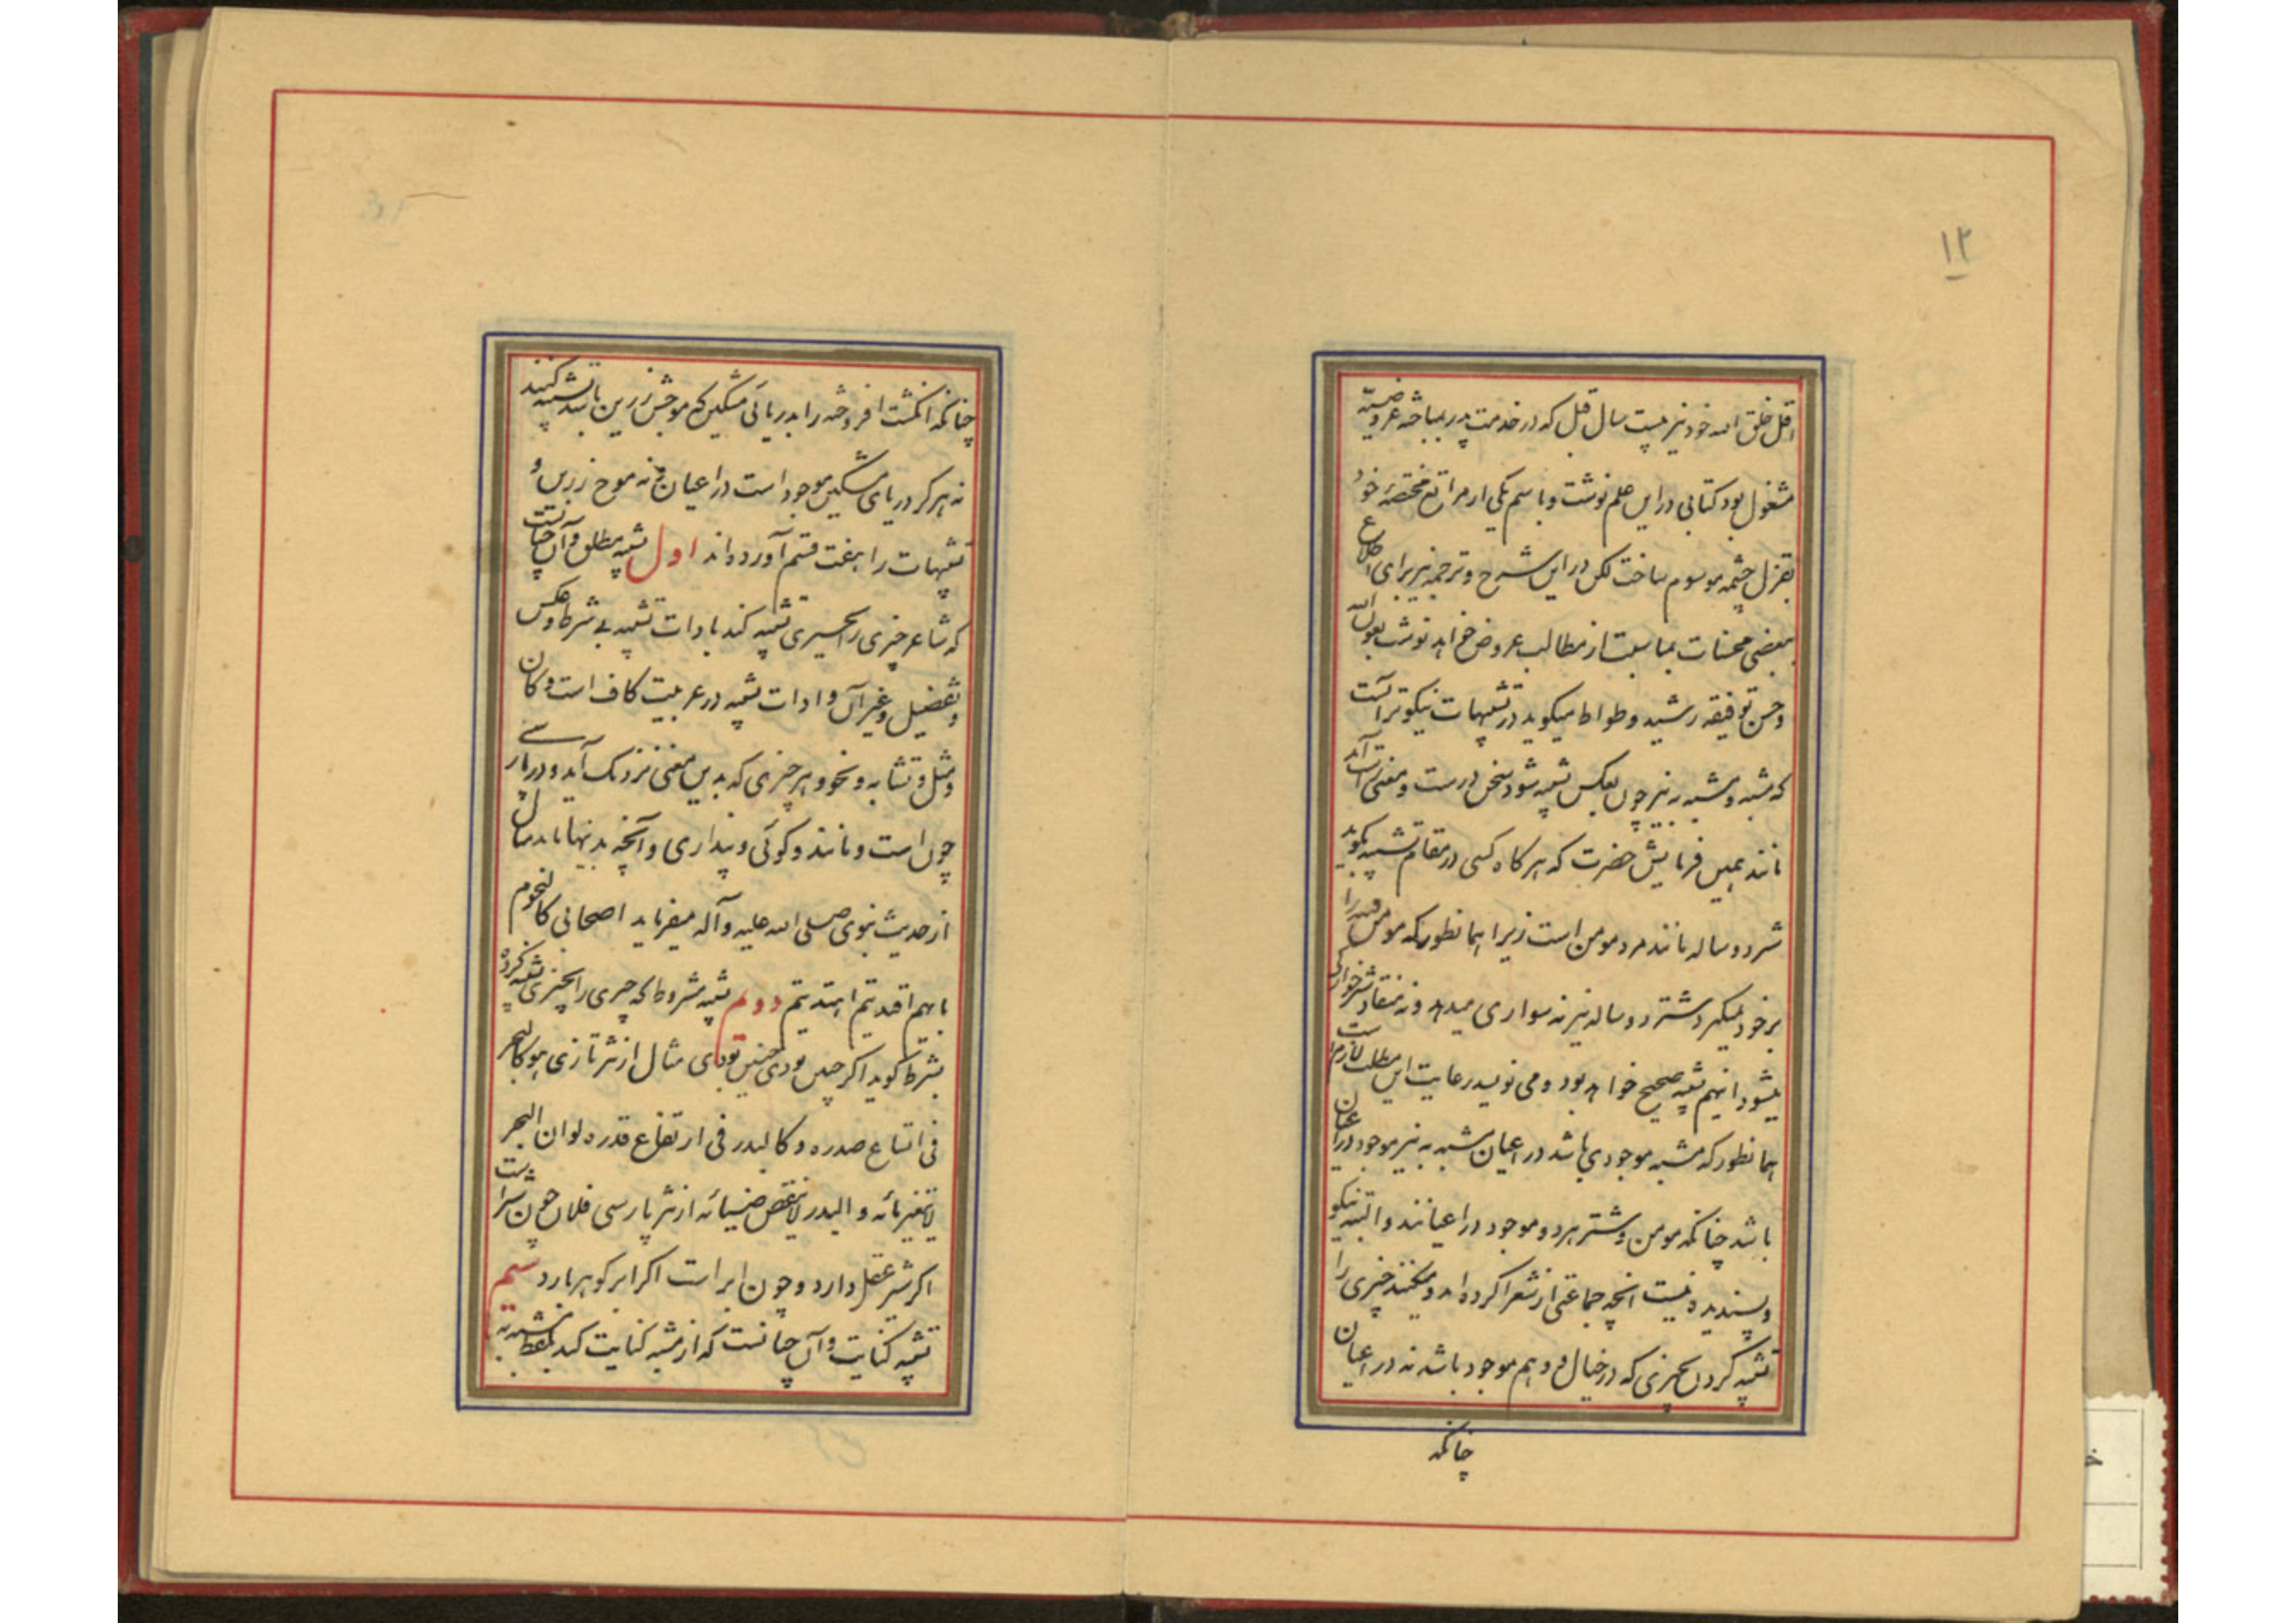 ۱۲
اقل خلق الله خود نیز بیست سال قبل که در خدمت پدر بمباحثه عروضیه
مشغول بود کتابی در این علم نوشت و باسم یکی از مراتع مختصهٔ خود
بقزل چشمه موسوم ساخت لکن در این شرح و ترجمه نیز برای اطلاع
بعضی محسنات بمناسبت از مطالب عروض خواهد نوشت بعون الله
و حسن توفیقه رشید وطواط میگوید در تشبیهات نیکوتر آنست
که مشبه و مشبه به نیز چون بعکس تشبیه شود سخن درست و معنی راست آید
مانند همین فرمایش حضرت که هر گاه کسی در مقام تشبیه بگوید
شتر دو ساله مانند مرد مومن است زیرا همانطور که مومن
بر خود نمیگیرد شتر دو ساله نیز نه سواری میدهد و نه منقاد شترخوان
میشود اینهم تشبیه صحیح خواهد بود و می نویسد رعایت این مطلب لازم است
همانطور که مشبه موجودی باشد در اعیان مشبه به نیز موجود در اعیان
باشد چنانکه مومن و شتر هر دو موجود در اعیانند و البته نیکو
و پسندیده نیست انچه جماعتی از شعرا کرده اند و میکنند چیزی را
تشبیه کردن بچیزی که در خیال و وهم موجود باشد نه در اعیان
چنانکه
چنانکه انگشت افروخته را بدریائی مشکین که موجش زرین باشد تشبیه کنند
نه هرگز دریای مشکین موجود است در اعیان و نه موج زرین و
تشبیهات را بهفت قسم آورده اند اول تشبیه مطلق و آن چنانست
که شاعر چیزی را بچیزی تشبیه کند بادات تشبیه بی شرط و عکس
و تفضیل و غیر آن و ادات تشبیه در عربیت کاف است و کان
و مثل و تشابه و نحو و هر چیزی که بدین معنی نزدیک آید و در پارسی
چون است و مانند و گوئی و پنداری و آنچه بدینها ماند مثال
از حدیث نبوی صلی الله علیه و آله میفرماید اصحابی کالنجوم
بایهم اقتدیتم اهتدیتم دوم تشبیه مشروط که چیزی را بچیزی تشبیه کرده
بشرط گوید اگر چنین بودی چنین بودی مثال از نثر تازی هو کالبحر
فی اتساع صدره و کالبدر فی ارتفاع قدره لو ان البحر
لا یتغیر مائه و البدر لا ینقص ضیائه از نثر پارسی فلان چون شیر است
اگر شیر عقل دارد و چون ابر است اگر ابر گوهر بارد سیم
تشبیه کنایت و آن چنانست که از مشبه کنایت کند بلفظ مشبه به